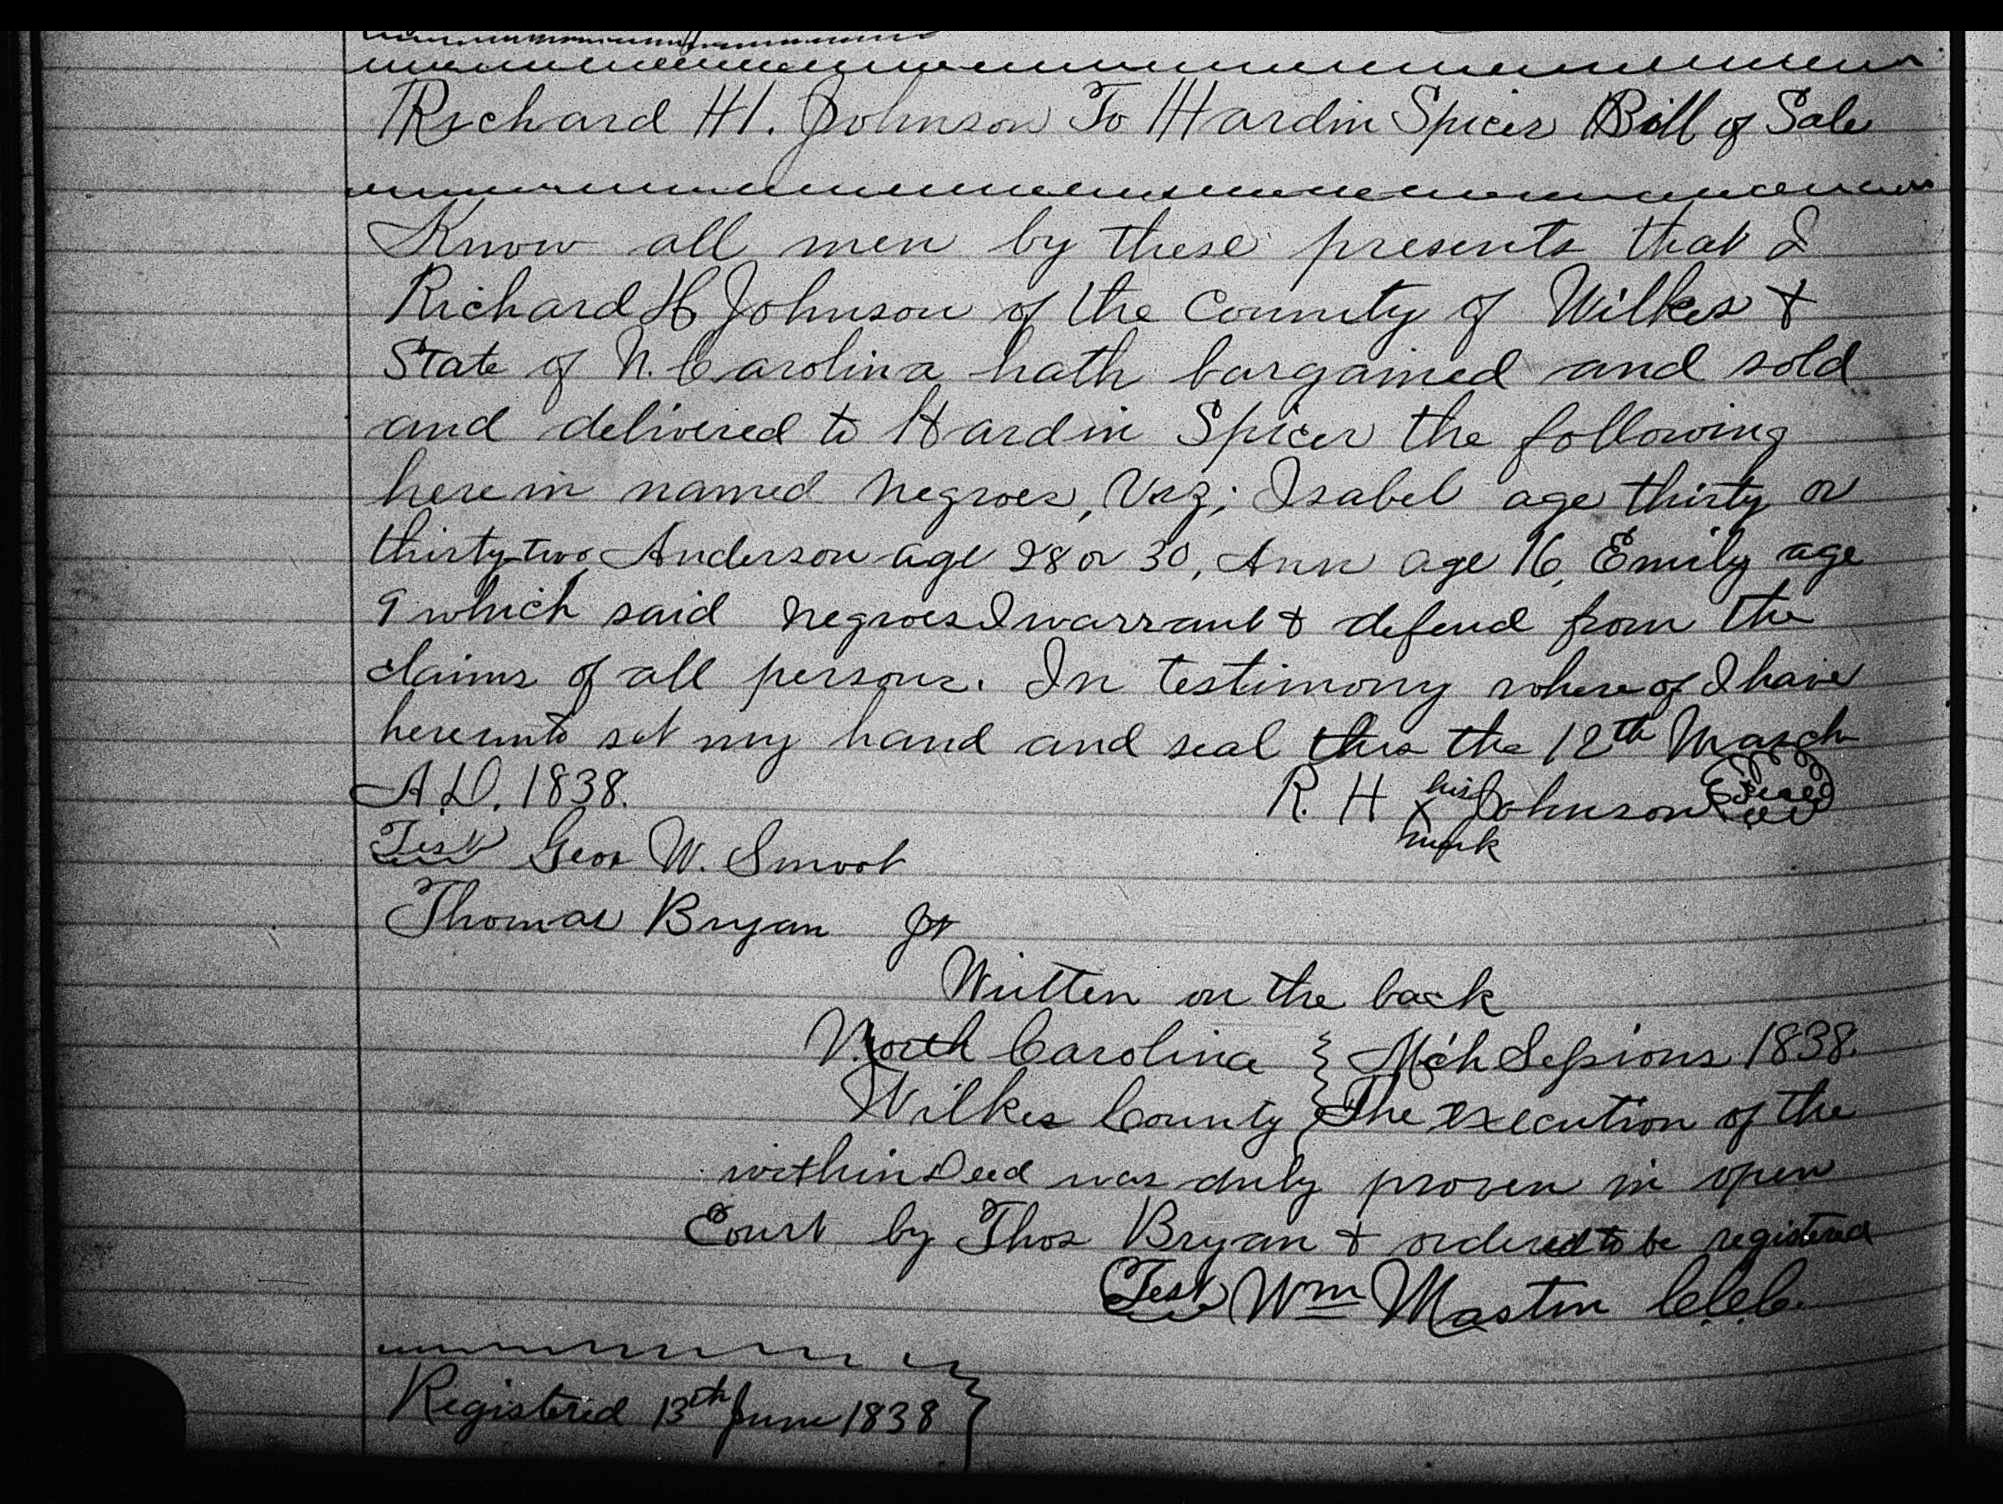 Richard H. Johnson To Hardin Spicer Bill of Sale
Know all men by these presents that I
Richard H Johnson of the County of Wilkes &
State of N. Carolina hath bargained and sold
and delivered to Hardin Spicer the following
herein named negroes, Viz; Isabel age thirty or
thirty-two, Anderson age 28 or 30, Ann age 16, Emily age
9 which said negroes I warrant & defend from the
claims of all persons. In testimony whereof I have
hereunto set my hand and seal this the 12th March
A.D. 1838. R. H his X mark Johnson Seal
Test Geo W. Smoot
Thomas Bryan Jr
Written on the back
North Carolina } Mch Sessions 1838.
Wilkes County } The execution of the
within Deed was duly proven in open
Court by Thos Bryan & ordered to be registered
Test Wm Mastin C.C.C.
Registered 13th June 1838 }